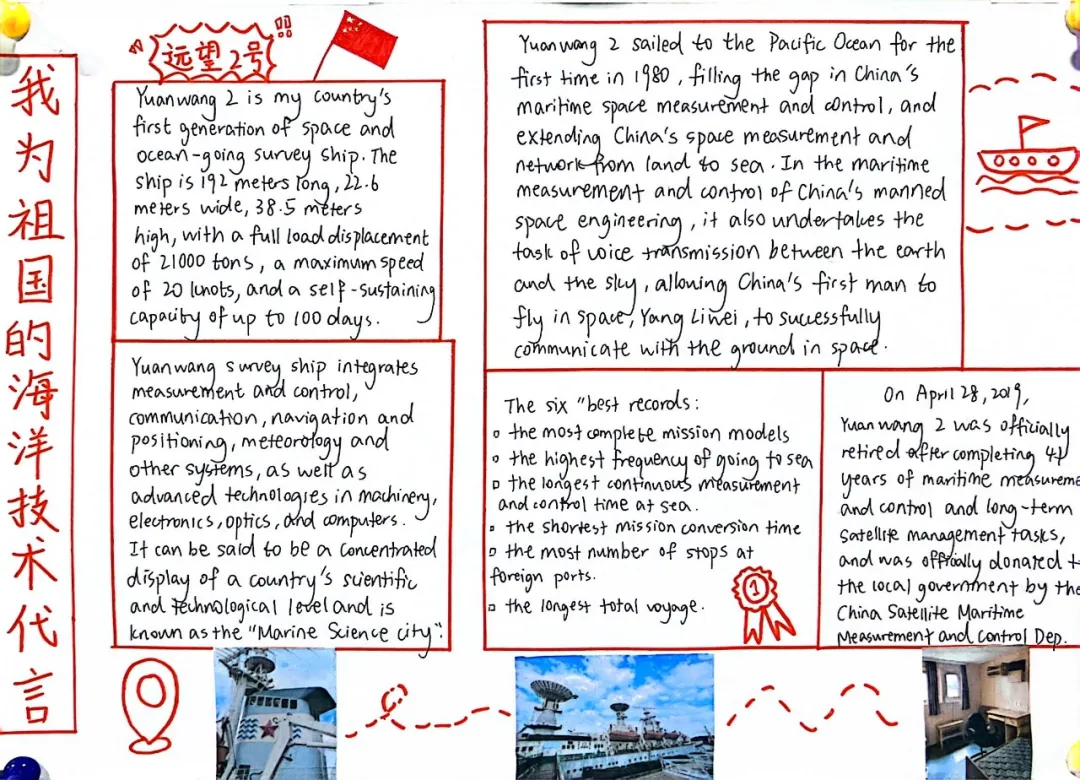 我为祖国的海洋技术代言
远望2号
Yuanwang 2 is my country's
first generation of space and
ocean-going survey ship. The
ship is 192 meters long, 22.6
meters wide, 38.5 meters
high, with a full load displacement
of 21000 tons, a maximum speed
of 20 knots, and a self-sustaining
capacity of up to 100 days.
Yuanwang survey ship integrates
measurement and control,
communication, navigation and
positioning, meteorology and
other systems, as well as
advanced technologies in machinery,
electronics, optics, and computers.
It can be said to be a concentrated
display of a country's scientific
and technological level and is
known as the "Marine Science city".
Yuanwang 2 sailed to the Pacific Ocean for the
first time in 1980, filling the gap in China's
maritime space measurement and control, and
extending China's space measurement and
network from land to sea. In the maritime
measurement and control of China's manned
space engineering, it also undertakes the
task of voice transmission between the earth
and the sky, allowing China's first man to
fly in space, Yang Liwei, to successfully
communicate with the ground in space.
The six "best records:
the most complete mission models
the highest frequency of going to sea
the longest continuous measurement
and control time at sea.
the shortest mission conversion time
the most number of stops at
foreign ports.
the longest total voyage.
1
On April 28, 2019,
Yuanwang 2 was officially
retired after completing 41
years of maritime measureme
and control and long-term
satellite management tasks,
and was officially donated t
the local government by the
China Satellite Maritime
Measurement and Control Dep.